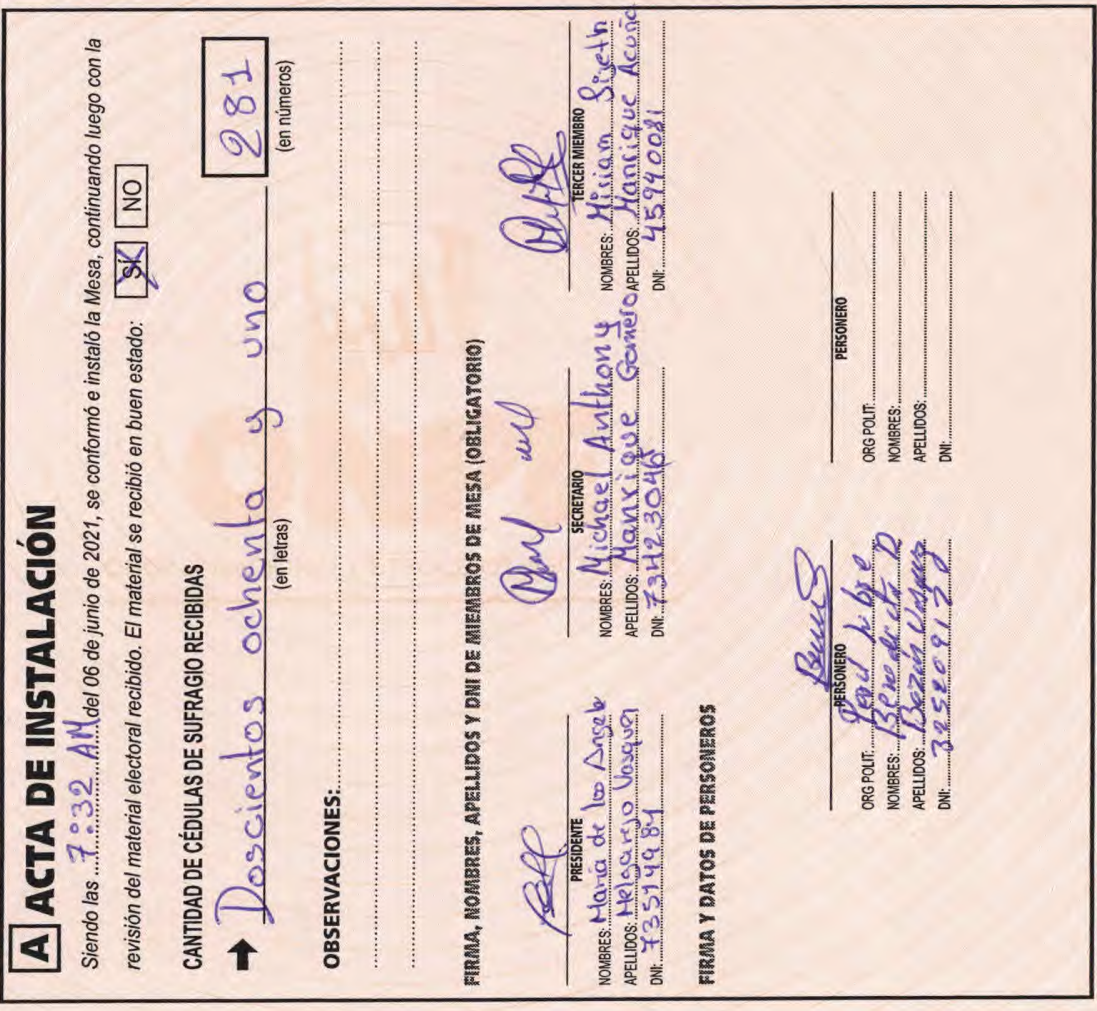 A ACTA DE INSTALACIÓN
Siendo las 7:32 AM del 06 de junio de 2021, se conformó e instaló la Mesa, continuando luego con la
revisión del material electoral recibido. El material se recibió en buen estado: SÍ NO
CANTIDAD DE CÉDULAS DE SUFRAGIO RECIBIDAS
Doscientos ochenta y uno 281
(en letras) (en números)
OBSERVACIONES:
FIRMA, NOMBRES, APELLIDOS Y DNI DE MIEMBROS DE MESA (OBLIGATORIO)
PRESIDENTE
NOMBRES: Maria de los Angele
APELLIDOS: Melgarejo Vasquez
DNI: 73514984
SECRETARIO
NOMBRES: Michael Anthony
APELLIDOS: Manrique Gomero
DNI: 73423046
TERCER MIEMBRO
NOMBRES: Miriam Sizeth
APELLIDOS: Manrique Acuña
DNI: 45940081
FIRMA Y DATOS DE PERSONEROS
PERSONERO
ORG POLIT: Perú Libre
NOMBRES: Benedicta D
APELLIDOS: Bazán Vasquez
DNI:
PERSONERO
ORG POLIT:
NOMBRES:
APELLIDOS:
DNI: